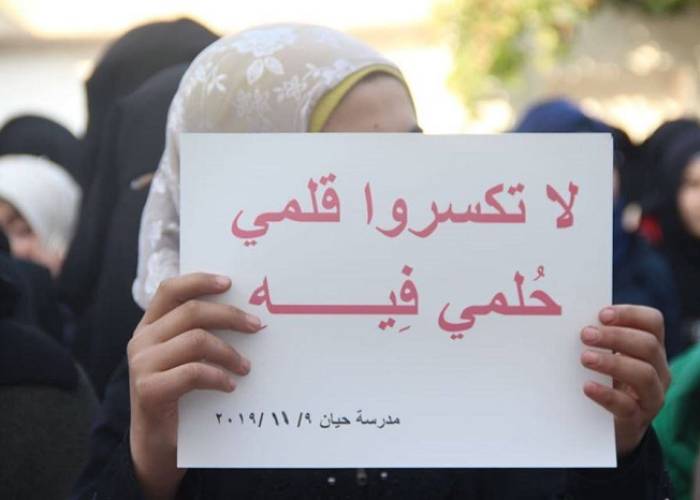 لا تكسروا قلمي
حُلمي فِيـــــهِ
مدرسة حيان ٩/ ١١ /٢٠١٩